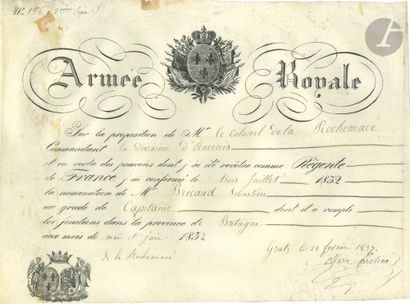 Armée Royale
Sur la proposition de Mr le Colonel de la Rochemace
Commandant la division d'Ancenis
et en vertu des pouvoirs dont j'ai été revêtue comme Régente
de France, j'ai confirmé le trois Juillet 1832
la nomination de Mr Bricaud Sébastien
au grade de Capitaine dont il a rempli
les fonctions dans la province de Bretagne
aux mois de mai et juin 1832
Gratz, le 28 février 1837
de la Rochemacé